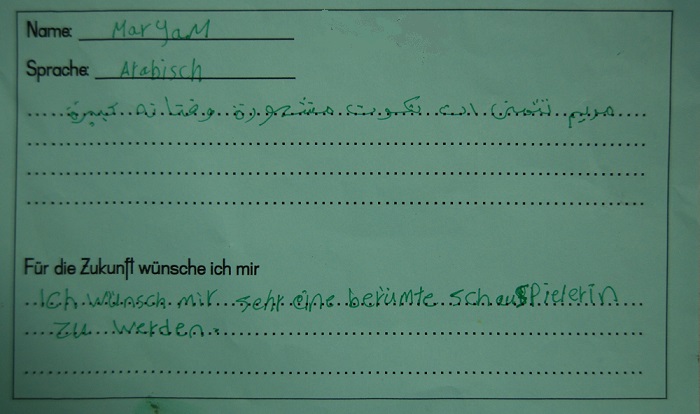 Name: MarYaM
Sprache: Arabisch
مريم تتمنى ان تكون مشهورة وفنانه كبيرة
Für die Zukunft wünsche ich mir
Ich wünsch mir sehr eine berümte schauspielerin
zu werden.